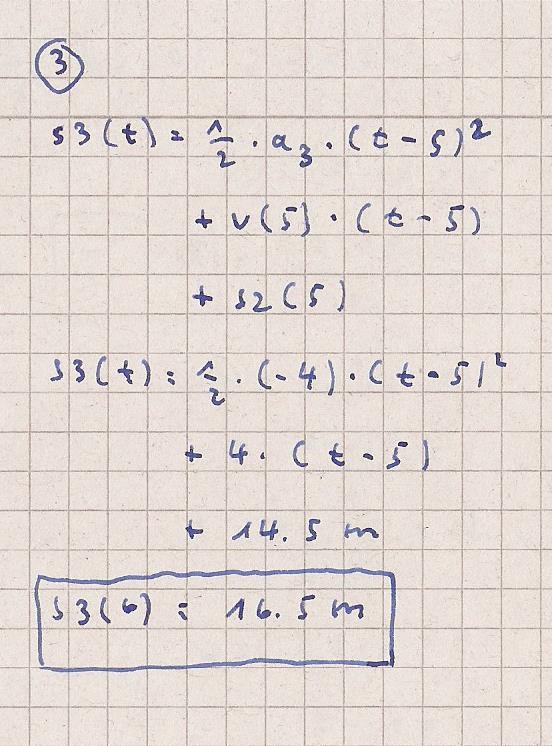 3
s3(t) = 1/2 · a₃ · (t - 5)²
+ v(5) · (t - 5)
+ s2(5)
s3(t) = 1/2 · (-4) · (t - 5)²
+ 4 · (t - 5)
+ 14.5 m
s3(6) = 16.5 m